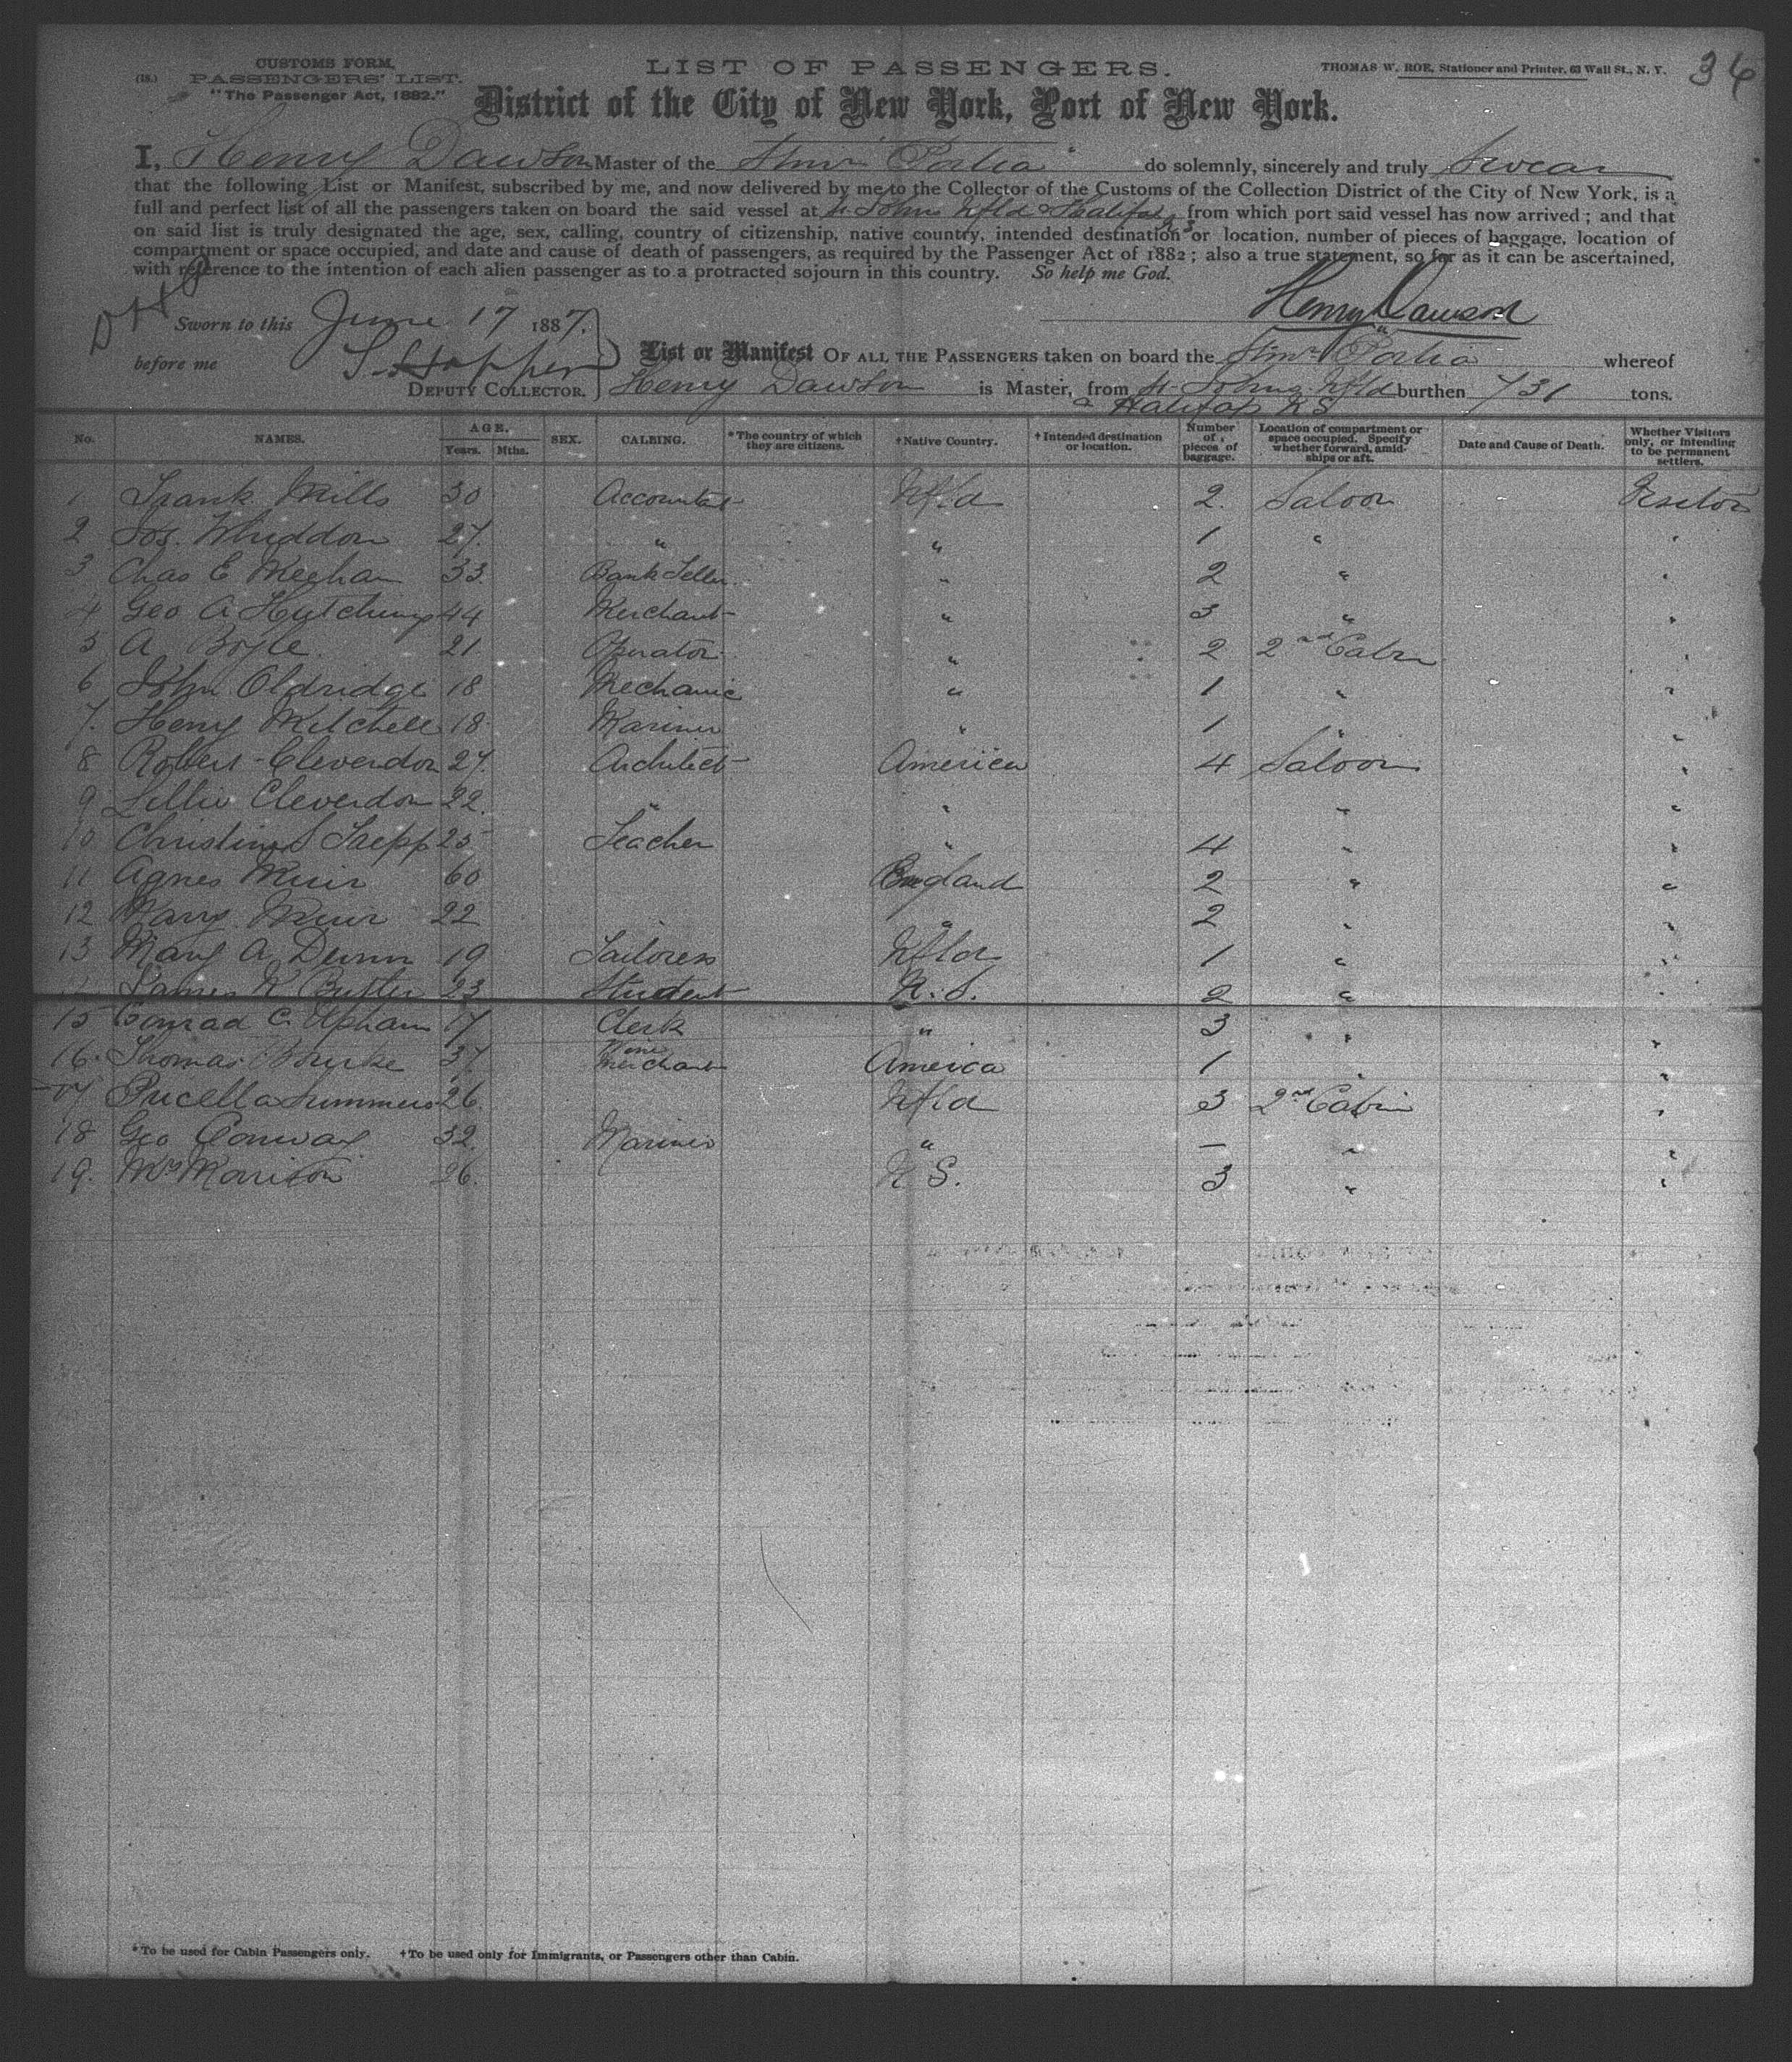 CUSTOMS FORM.
(18.) PASSENGERS' LIST.
"The Passenger Act, 1882."
LIST OF PASSENGERS.
THOMAS W. ROE, Stationer and Printer, 63 Wall St., N. Y.
36
District of the City of New York, Port of New York.
I, Henry Dawson Master of the Stmr "Portia" do solemnly, sincerely and truly Swear
that the following List or Manifest, subscribed by me, and now delivered by me to the Collector of the Customs of the Collection District of the City of New York, is a
full and perfect list of all the passengers taken on board the said vessel at St Johns Nfld & Halifax N S from which port said vessel has now arrived; and that
on said list is truly designated the age, sex, calling, country of citizenship, native country, intended destination or location, number of pieces of baggage, location of
compartment or space occupied, and date and cause of death of passengers, as required by the Passenger Act of 1882; also a true statement, so far as it can be ascertained,
with reference to the intention of each alien passenger as to a protracted sojourn in this country. So help me God.
Sworn to this June 17 1887. Henry Dawson
before me S. Hopper List or Manifest OF ALL THE PASSENGERS taken on board the Stmr "Portia whereof
DEPUTY COLLECTOR. Henry Dawson is Master, from St. Johns Nfld burthen 731 tons.
Halifax N S
No. NAMES. AGE. Years. Mths. SEX. CALLING. *The country of which they are citizens. †Native Country. †Intended destination or location. Number of pieces of baggage. Location of compartment or space occupied. Specify whether forward, amidships or aft. Date and Cause of Death. Whether Visitors only, or intending to be permanent settlers.
1 Frank Mills 30 Accountant Nfld 2. Saloon Visitors
2 Jos. Whiddon 27. " " 1 " "
3 Chas E Meehan 33. Bank Teller " 2 " "
4 Geo A Hutchings 44 Merchant " 3 " "
5 A Boyle. 21 Operator " 2 2nd Cabin "
6 John Oldridge 18 Mechanic " 1 " "
7. Henry Mitchell 18 Mariner " 1 " "
8 Robert Cleverdon 27. Architect America 4 Saloon "
9 Lillie Cleverdon 22. " " " "
10 Christina S 25 Teacher " 4 " "
11 Agnes Muir 60 England 2 " "
12 Mary Muir 22 " 2 " "
13 Mary A Dunn 19 Tailoress Nfld 1 " "
James K 23 Student N. S. 2 " "
15 Conrad C. Upham 17 Clerk " 3 " "
16. Thomas Bourke 37. Wine Merchant America 1 " "
17 Pricella Summers 26. Nfld 3 2nd Cabin "
18 Geo Conway 32. Mariner " – " "
19. Mrs Morrison 26. N S. 3 " "
*To be used for Cabin Passengers only. †To be used only for Immigrants, or Passengers other than Cabin.